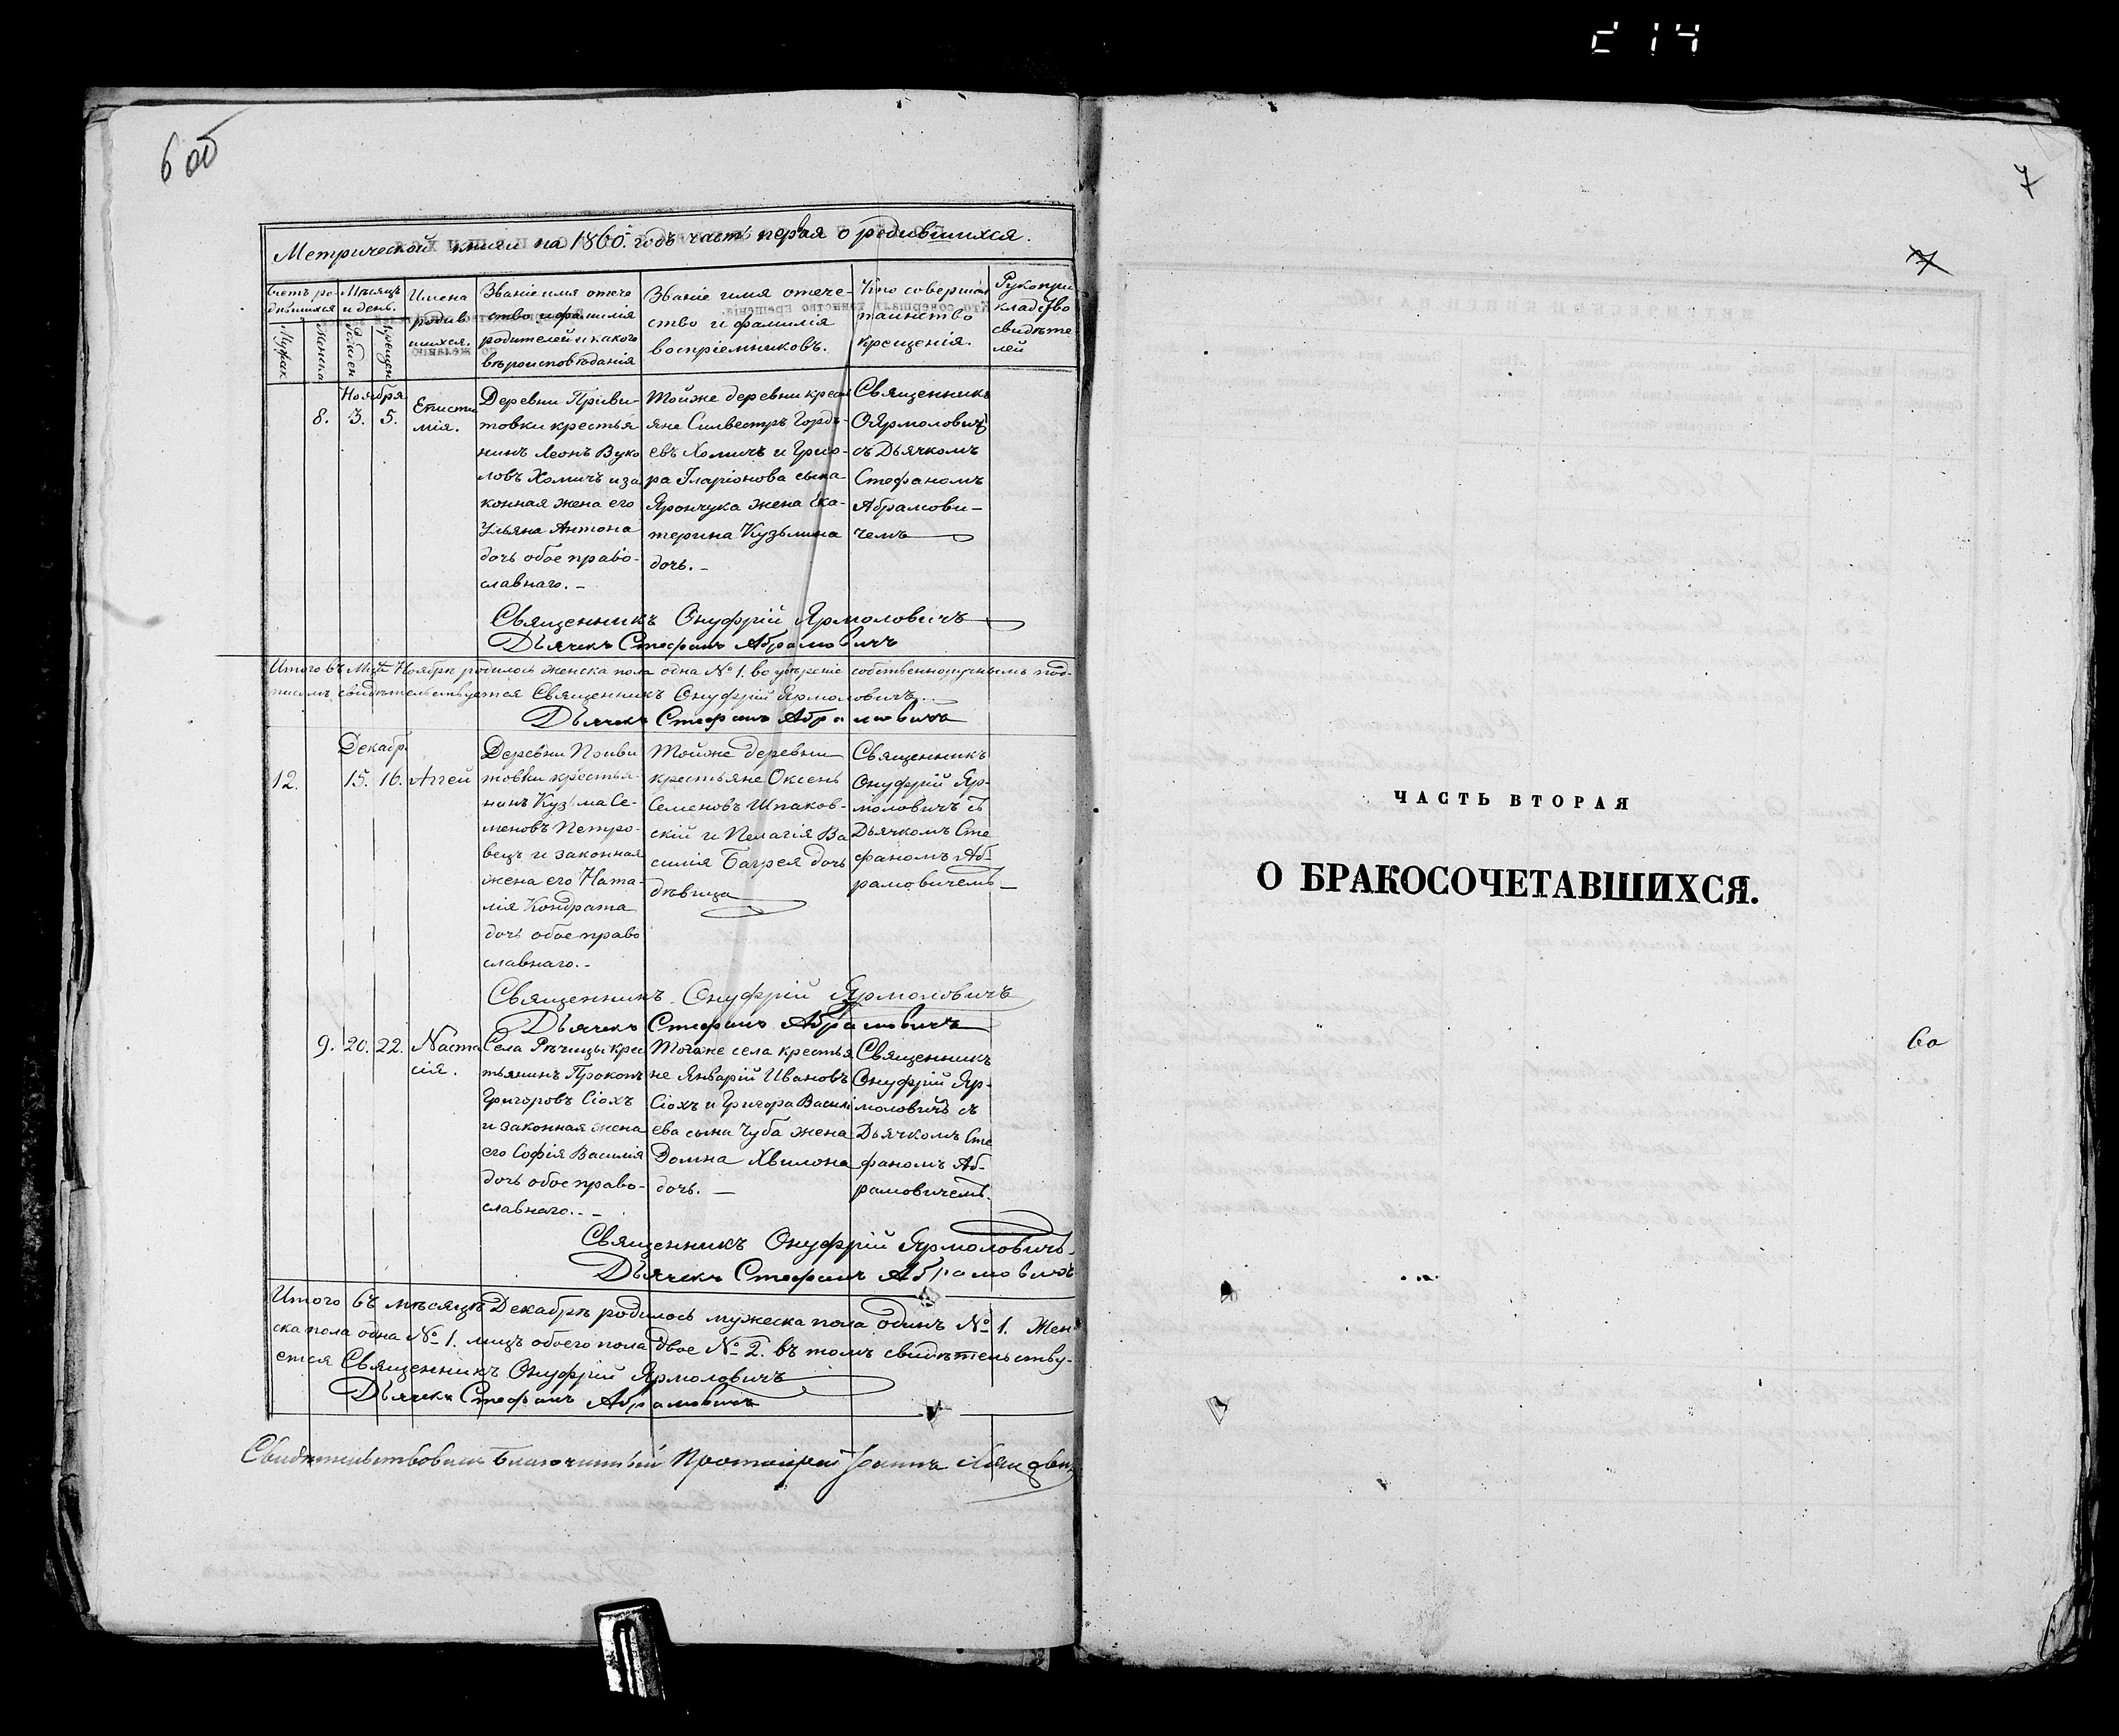 6 об
Метрической книги на 1860. годъ часть перьая о родившихся.
Счетъ ро-
дившихся
Мѣсяцъ
и день.
Мужск
Женска
Рожден
Крещен
Имена
родив
шихся.
Званіе имя отече
ство и фамилія
родителей и какого
вѣроисповѣданія
Званіе имя отече-
ство и фамилія
воспріемниковъ.
Кто совершал
таинство
крещенія.
Рукопри
кладство
свидѣте
лей
Ноября
8. 3. 5.
Еписти
мія.
Деревни Приви-
товки крестья
нинъ Леонъ Вуко
ловъ Хомичъ и за
конная жена его
Ульяна Антона
дочь обое право-
славнаго. -
Тойже деревни крест
яне Силвестръ Гордѣ-
евъ Хомичъ и Григо-
ра Иларіонова сына
Ярончука жена Ека-
терина Кузьмина
дочь. -
Священникъ
О Ярмоловичъ
съ Дьячкомъ
Стефаномъ
Абрамови-
чемъ
Священникъ Онуфрій Ярмоловичъ
Дьячекъ Стефанъ Абрамовичъ
Итого въ Мцѣ Ноябрѣ родилось женска пола одна № 1. во увѣреніе собственноручнымъ под-
писомъ свидѣтельствуется Священникъ Онуфрій Ярмоловичъ
Дьячекъ Стефанъ Абрамовичъ
Декабр.
12. 15. 16. Аггей
Деревни Приви
товки крестья-
нинъ Кузьма Се-
меновъ Петро-
вецъ и законная
жена его Ната-
лія Кондрата
дочь обое право
славнаго. -
Тойже деревни
крестьяне Оксень
Семеновъ Шпаков-
скій и Пелагія Ва
силія Багрея дочь
дѣвица
Священникъ
Онуфрій Яр-
моловичъ съ
Дьячкомъ Сте
фаномъ Аб-
рамовичемъ
Священникъ Онуфрій Ярмоловичъ
Дьячекъ Стефанъ Абрамовичъ
9. 20. 22.
Наста
сія.
Села Рѣчицы крес
тьянинъ Прокопъ
Григоровъ Сіохъ
и законная жена
его Софія Василія
дочь обое право-
славнаго. -
Тогоже села крестья
не Январій Ивановъ
Сіохъ и Григора Васили
ева сына Чуба жена
Домна Хвилона
дочь. -
Священникъ
Онуфрій Яр-
моловичъ съ
Дьячкомъ Сте
фаномъ Аб-
рамовичемъ.
Священникъ Онуфрій Ярмоловичъ
Дьячекъ Стефанъ Абрамовичъ
Итого въ мѣсяцѣ Декабрѣ родилось мужеска пола одинъ № 1. Жен
ска пола одна № 1. лицъ обоего пола двое № 2. въ томъ свидѣтельству-
ется Священникъ Онуфрій Ярмоловичъ
Дьячекъ Стефанъ Абрамовичъ
Свидѣтельствовалъ Благочинный Протоіерей Іоаннъ
7
ЧАСТЬ ВТОРАЯ
О БРАКОСОЧЕТАВШИХСЯ.